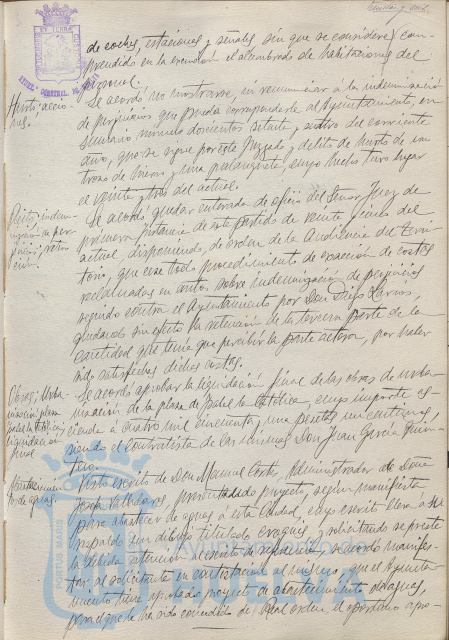 de coches, estaciones y señales sin que se considere com-
prendido en la exención el alumbrado de habitaciones del
personal.
Hurto; accio-
nes.
Se acordó no mostrarse, ni renunciar á la indemnización
de perjuicios que pueda corresponderle al Ayuntamiento, en
sumario número doscientos setenta y cuatro del corriente
año, que se sigue por este Juzgado y delito de hurto de un
trozo de hierro y una palanqueta, cuyo hecho tuvo lugar
el veinte y tres del actual.
Pleito; indem-
nización de per-
juicios;
Se acordó quedar enterada de oficio del Señor Juez de
primera instancia de este partido de veinte y cinco del
actual, disponiendo, de orden de la Audiencia del terri-
torio, que cese todo procedimiento de exacción de costas
en autos sobre indemnización de perjuicios
seguido contra el Ayuntamiento por Don Diego
quedando sin efecto la retención de la tercera parte de la
cantidad que tenía que percibir la parte actora, por haber
sido satisfechas dichas costas.
Obras; Urba-
nización plaza
Isabel la Católica;
liquidación
final
Se acordó aprobar la liquidación final de las obras de urba-
nización de la plaza de Isabel la Católica, cuyo importe as-
ciende á cuatro mil cincuenta y una pesetas un céntimo,
siendo el contratista de las mismas Don Juan García Quin-
tero.
Abastecimien-
to de aguas.
Visto escrito de Don Manuel Cortés, Administrador de Doña
Josefa Valladares, presentando proyecto, según manifiesta
para abastecer de aguas á esta Ciudad, cuyo escrito lleva á su
respaldo un dibujo titulado croquis y solicitando se preste
la debida atención al escrito de referencia, se acordó manifes-
tar al solicitante en contestación al mismo, que el Ayunta-
miento tiene aprobado proyecto de abastecimiento de aguas,
para el que le ha sido concedido de Real orden, el oportuno apro-
PORTUS MARIS